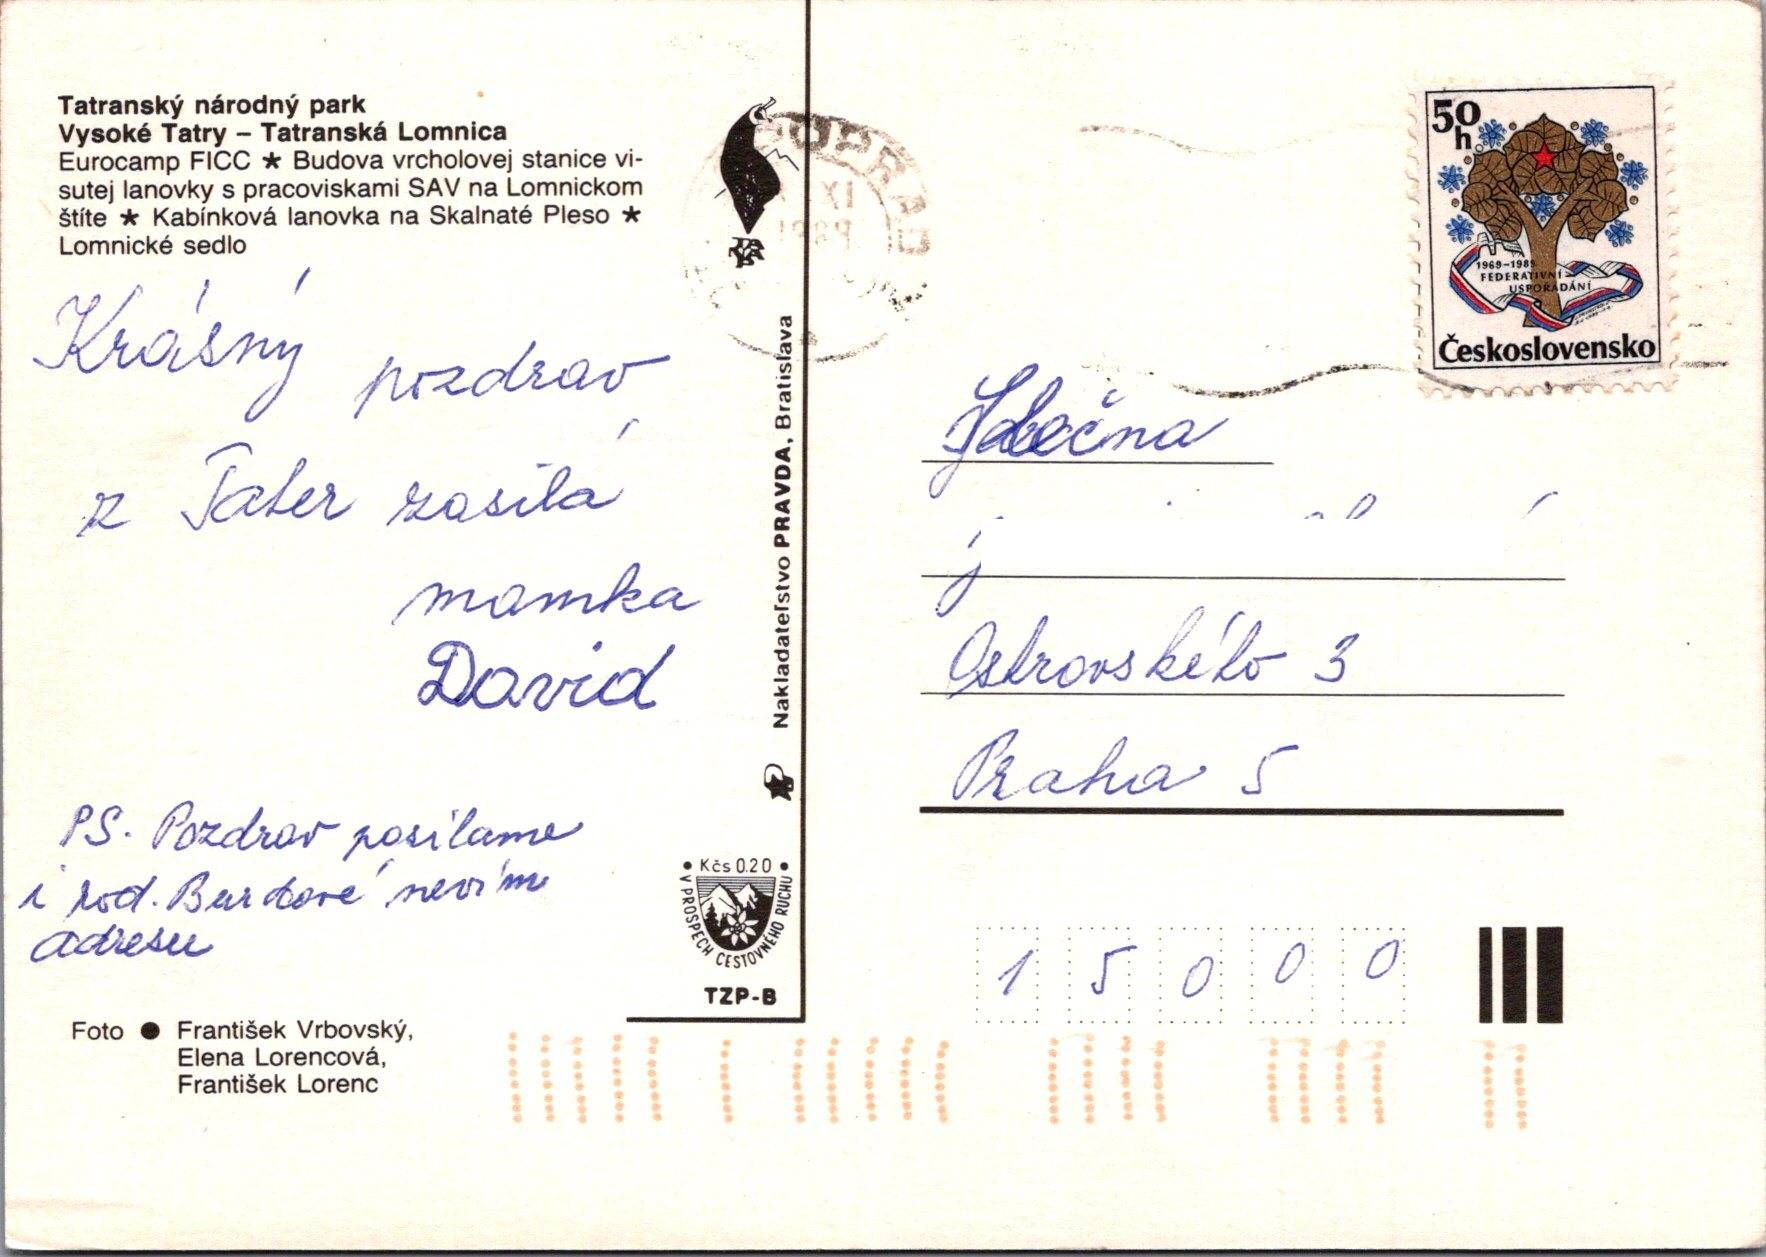 Tatranský národný park
Vysoké Tatry – Tatranská Lomnica
Eurocamp FICC ★ Budova vrcholovej stanice vi-
sutej lanovky s pracoviskami SAV na Lomnickom
štíte ★ Kabínková lanovka na Skalnaté Pleso ★
Lomnické sedlo
Krásný pozdrav
z Tater zasílá
mamka
David
PS. Pozdrav posílame
i rod. nevíme
adresu
Foto ● František Vrbovský,
Elena Lorencová,
František Lorenc
Nakladateľstvo PRAVDA, Bratislava
• Kčs 0.20 •
V PROSPECH CESTOVNÉHO RUCHU
TZP-B
POPRAD
IX
50
h
1969–1989
FEDERATIVNÍ
USPOŘÁDÁNÍ
Československo
Slečna
Ostrovského 3
Praha 5
1 5 0 0 0